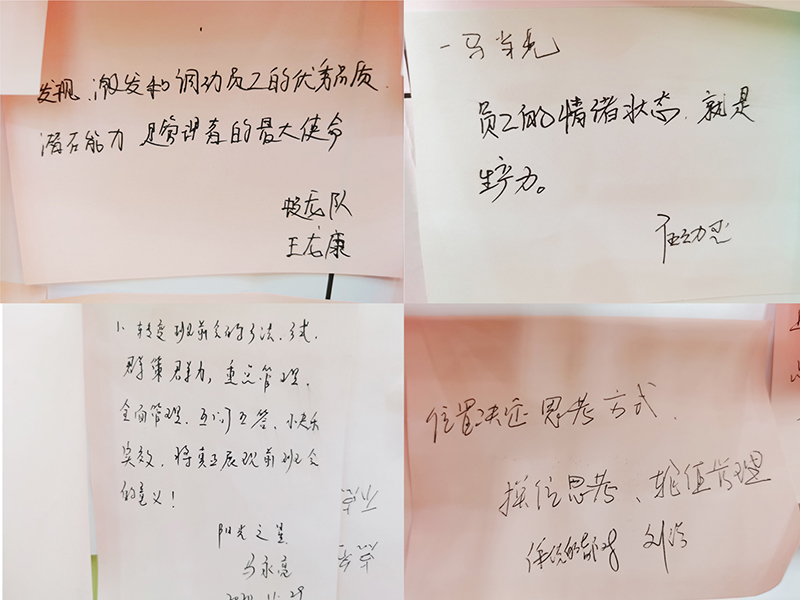 发现、激发和调动员工的优秀品质、
潜在能力 是管理者的最大使命
队
王龙康
一马当先
员工的情绪状态, 就是
生产力。
1、转变班前会的方法、方式,
群策群力, 重点管理、
全面管理、互问互答、
实效, 将真正展现前班会
的意义!
阳光之星
马永亮
2020.11.29
位置决定思考方式、
换位思考、轮值管理
刘